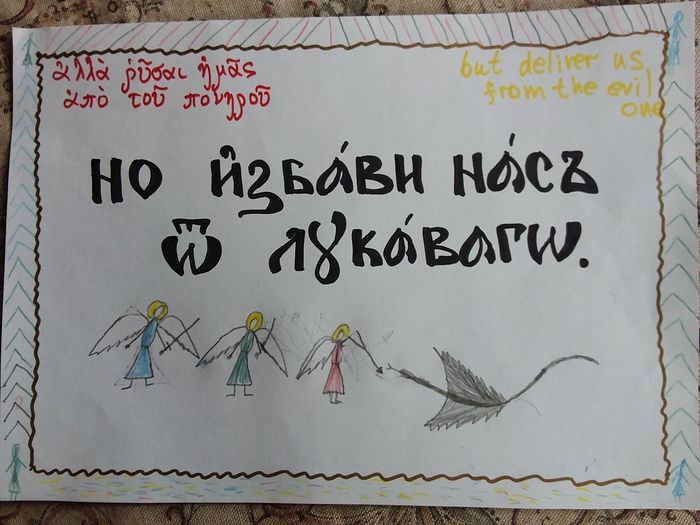 ἀλλὰ ῥῦσαι ἡμᾶς
ἀπὸ τοῦ πονηροῦ
but deliver us
from the evil
one
но и҆зба́ви на́съ
ѿ лꙋка́вагѡ.